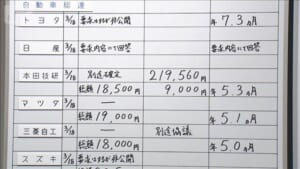 自動車総連
トヨタ 3/18 要求はするが非公開 年7.3ヵ月
日産 3/18 要求内容にて回答 要求内容にて回答
本田技研 3/18 別途確定 219,560円
総額 18,500円 9,000円 年5.3ヵ月
マツダ 3/18 ―
総額 19,000円 年5.1ヵ月
三菱自工 3/18 ― 別途協議
総額 18,000円 年5.0ヵ月
スズキ 3/18 要求はするが非公開